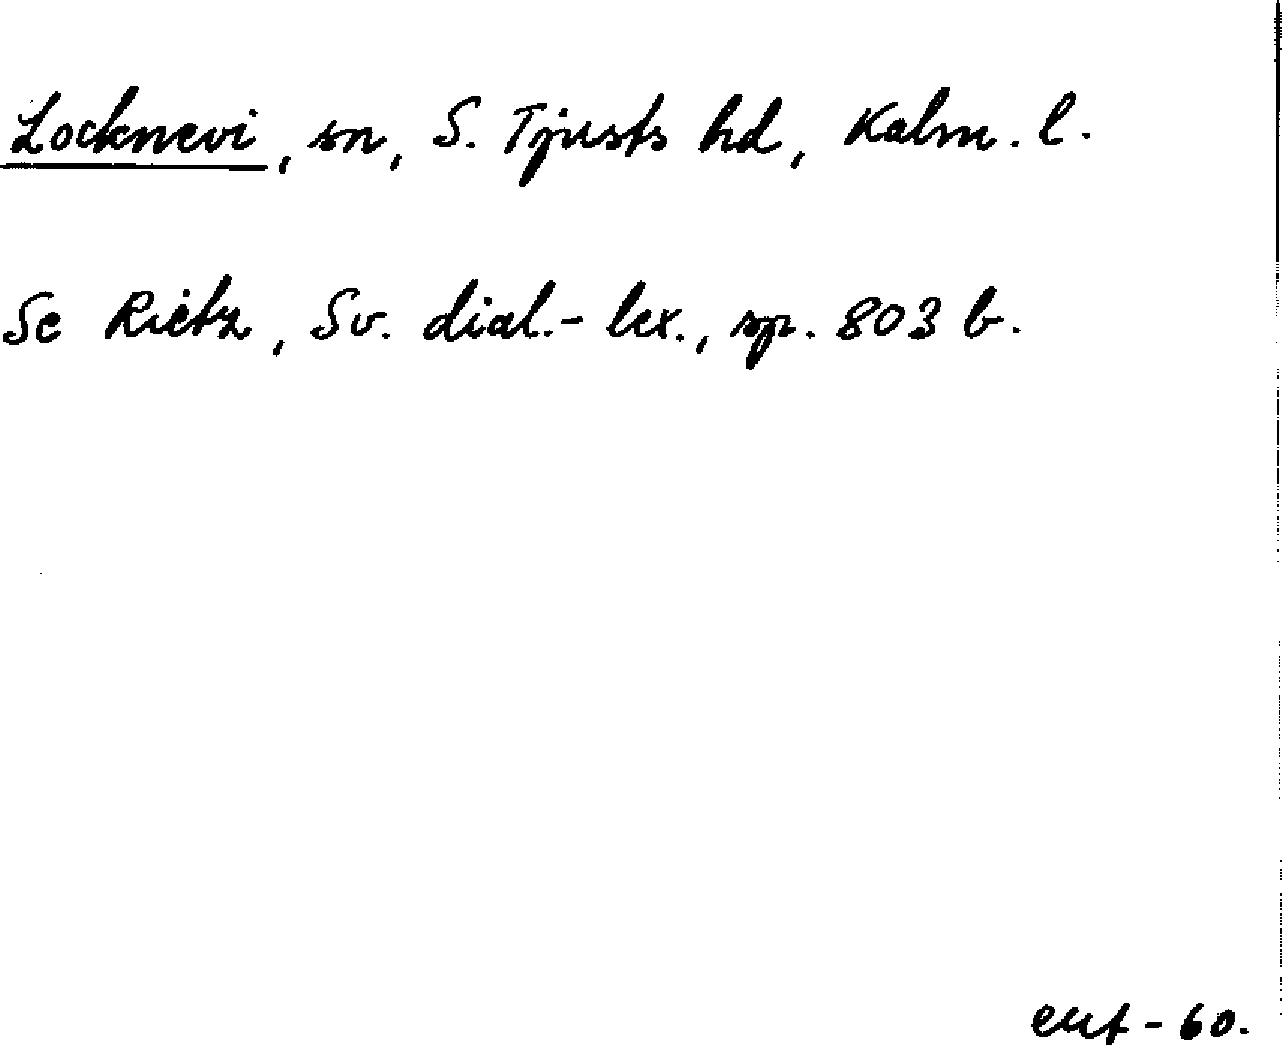 Locknevi, sn, S. Tjusts hd, Kalm. l.
Se Rietz, Sv. dial.-lex., sp. 803 b.
-60.